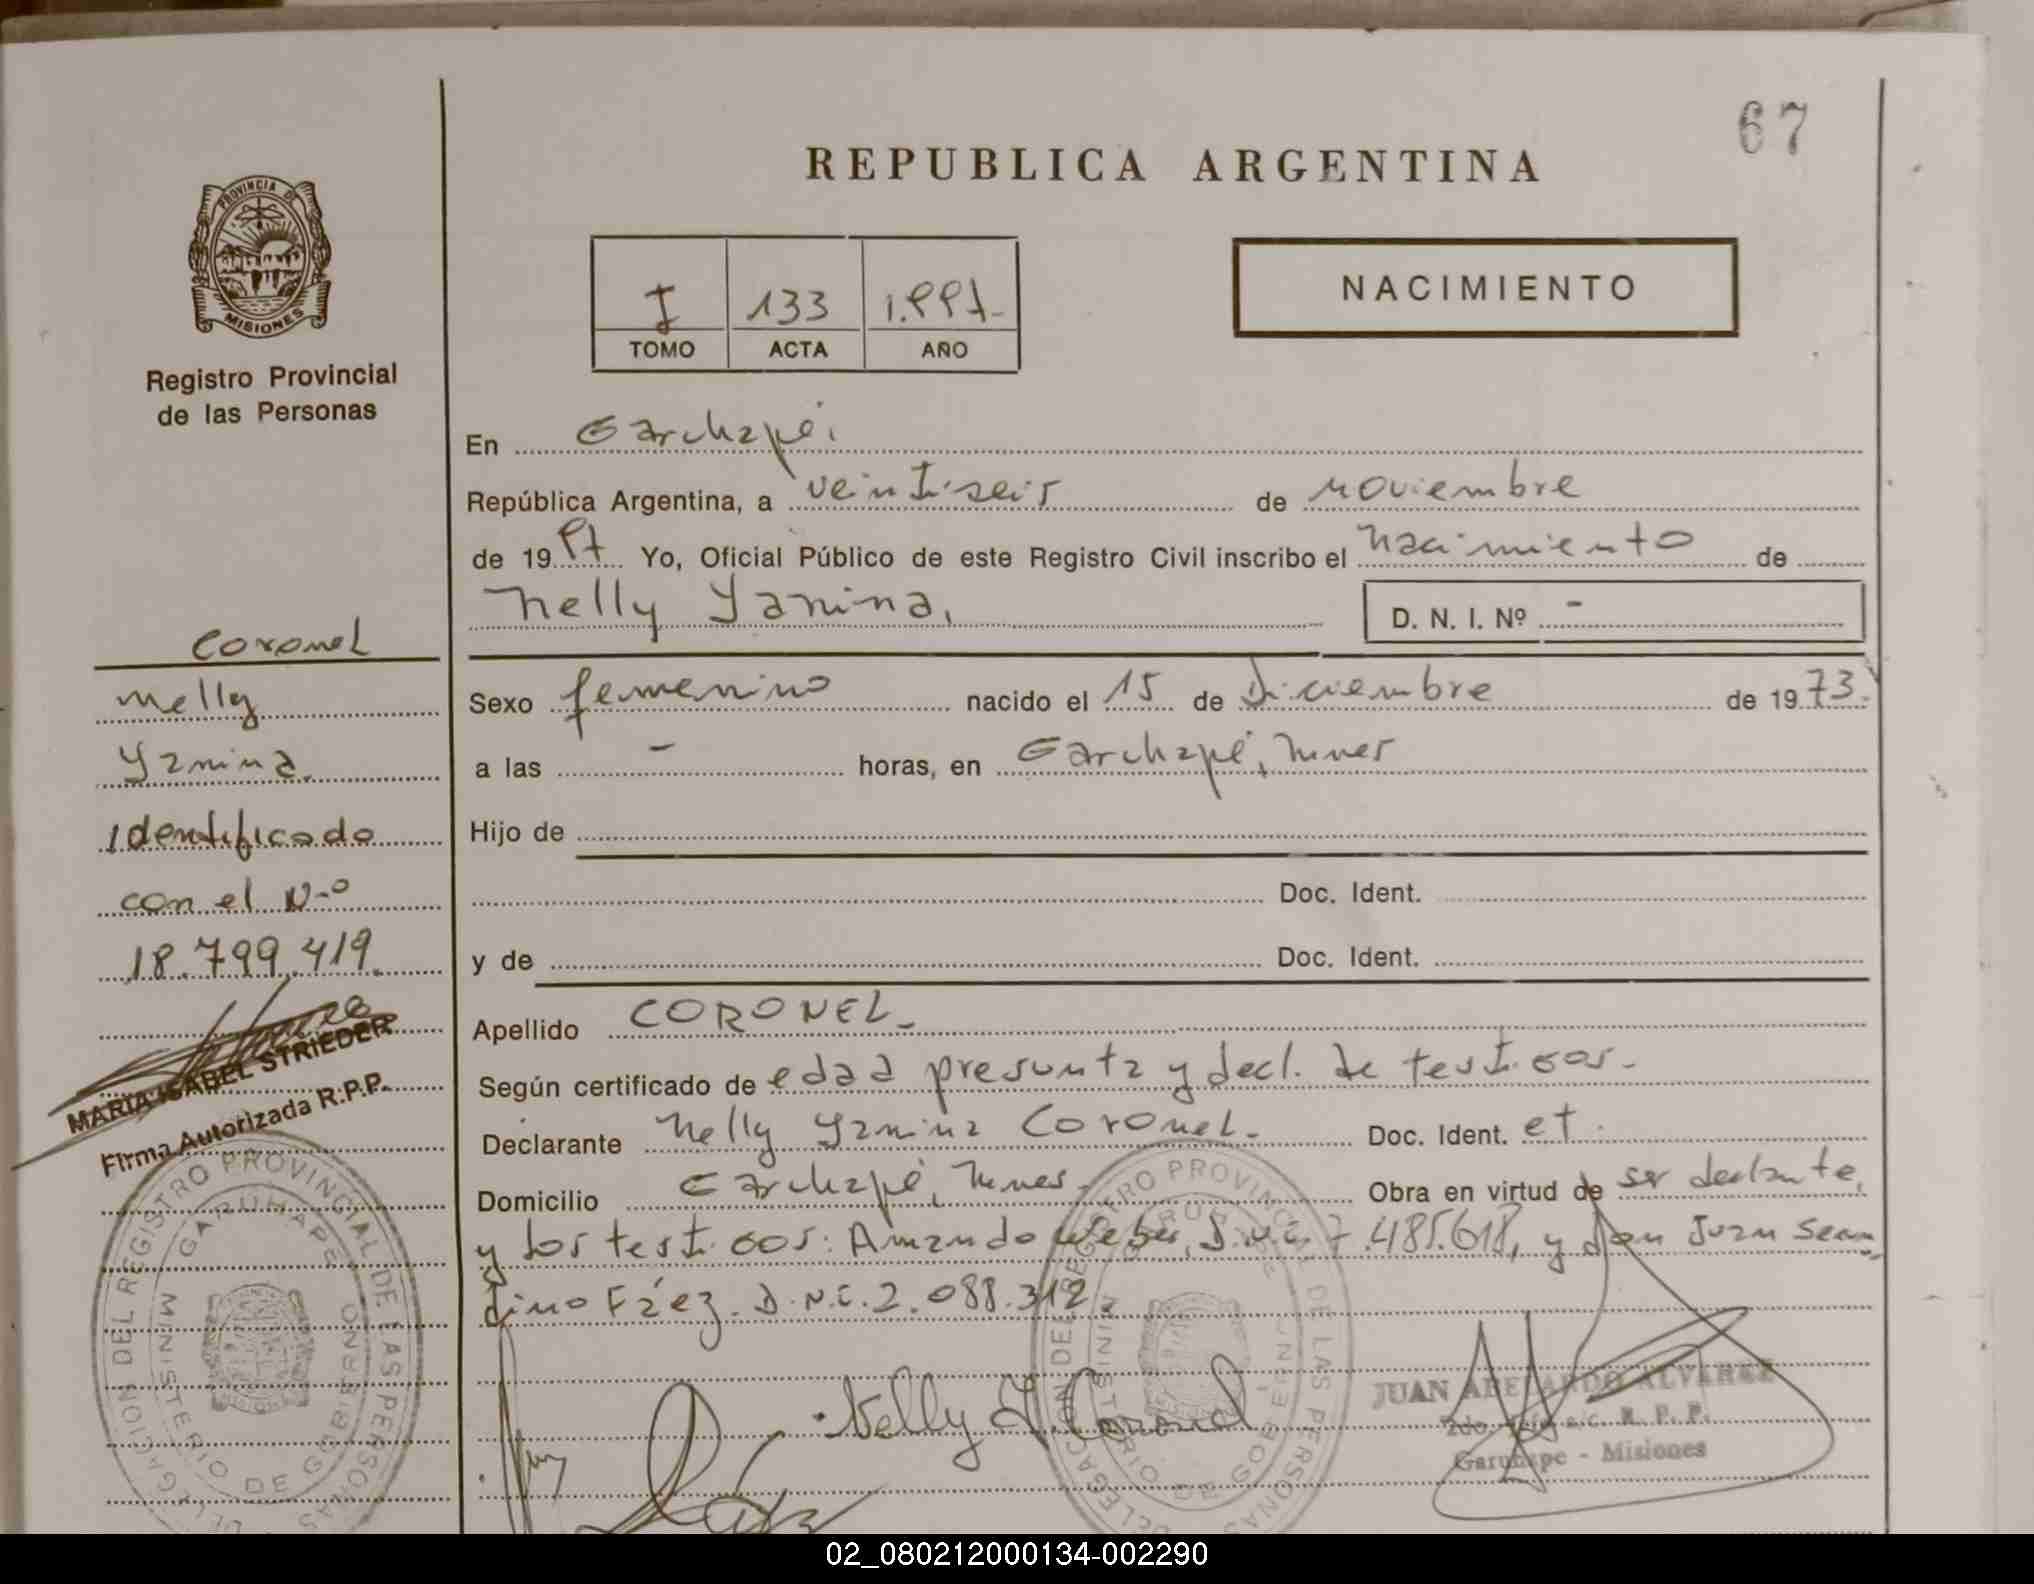 67
REPUBLICA ARGENTINA
PROVINCIA DE
MISIONES
Registro Provincial
de las Personas
I 133 1.997-
TOMO ACTA AÑO
NACIMIENTO
En Garuhapé.
República Argentina, a veintiseis de noviembre
de 1997 Yo, Oficial Público de este Registro Civil inscribo el nacimiento de
Nelly Yanina,
D. N. I. Nº -
Coronel
Nelly
Yanina.
Identificado
con el N-º
18.799.419.
MARIA ISABEL STRIEDER
Firma Autorizada R.P.P.
Sexo femenino nacido el 15 de Diciembre de 1973.
a las - horas, en Garuhapé, Mnes
Hijo de
Doc. Ident.
y de Doc. Ident.
Apellido CORONEL-
Según certificado de edad presunta y decl. de testigos-
Declarante Nelly Yanina Coronel- Doc. Ident. et.
Domicilio Garuhapé, Mnes- Obra en virtud de ser declante,
y los testigos: Amando Weber, D.N.I. 7.485.618, y don Juan Secun
dino Fáez. D.N.I. 2.088.312.
Nelly Y Coronel
JUAN ABELARDO ALVAREZ
2do. Jefe a/c. R. P. P.
Garuhape - Misiones
DELEGACION DEL REGISTRO PROVINCIAL DE LAS PERSONAS
GARUHAPE
MINISTERIO DE GOBIERNO
DELEGACION DEL REGISTRO PROVINCIAL DE LAS PERSONAS
GARUHAPE
MINISTERIO DE GOBIERNO
02_080212000134-002290